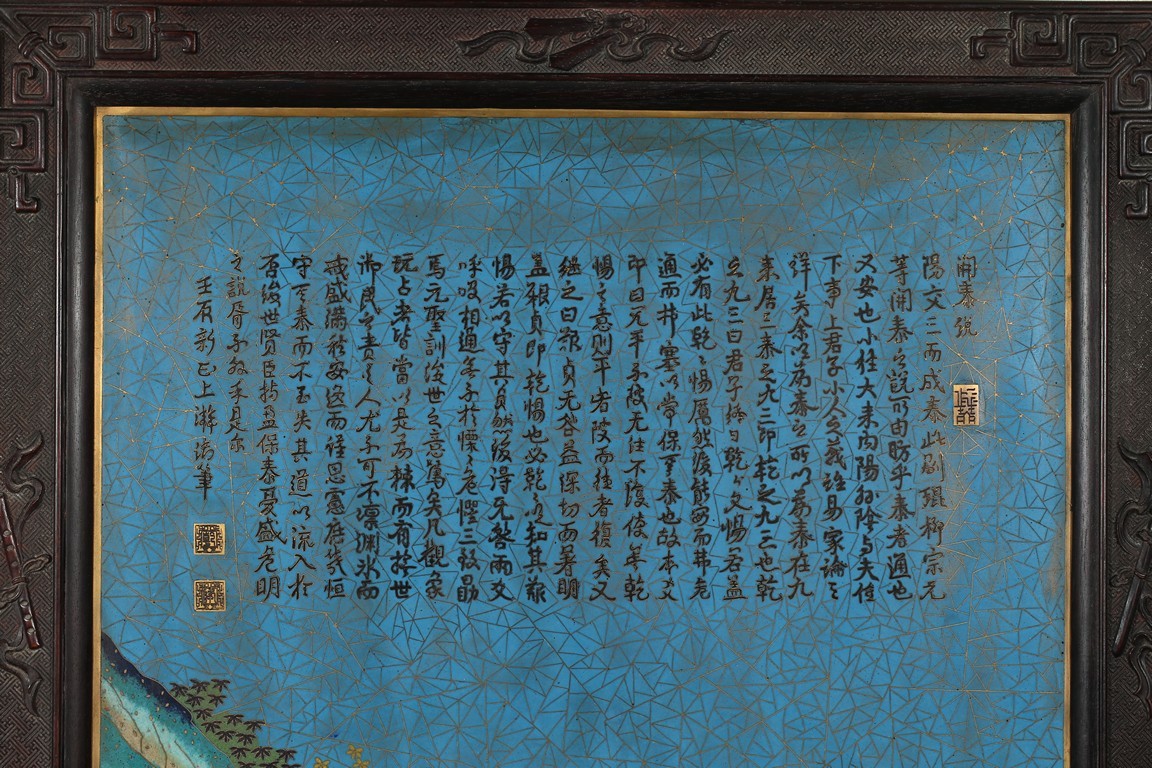 開泰說
陽交三而成泰此劉琨柳宗元
等開泰之說所由昉乎泰者通也
又安也小往大來內陽外陰與夫
下事上君子小人之義註易家論之
詳矣余以為泰之所以為泰在九
三泰之九三即乾之九三也乾
之九三曰君子終日乾乾夕惕若蓋
必有此乾乾惕厲然後能安而弗危
通而弗塞以常保其泰也故本爻
即曰无平不陂无往不復使無乾
惕之意則平者陂而往者復矣又
繼之曰艱貞无咎益深切而著明
蓋艱貞即乾惕也必乾以知其艱
惕若以守其貞然後得无咎兩爻
呼吸相通 於慄危 三致勖
焉元聖訓後世之意篤矣凡觀象
玩占者皆當以是為棘而有撫世
御民之責之人尤不可不凜淵冰而
戒盛滿於安 而謹思 幾恒
守其泰而不至失其道以流入於
否後世賢臣持盈保泰憂盛危明
之說胥不外乎是尔
新正上澣御筆